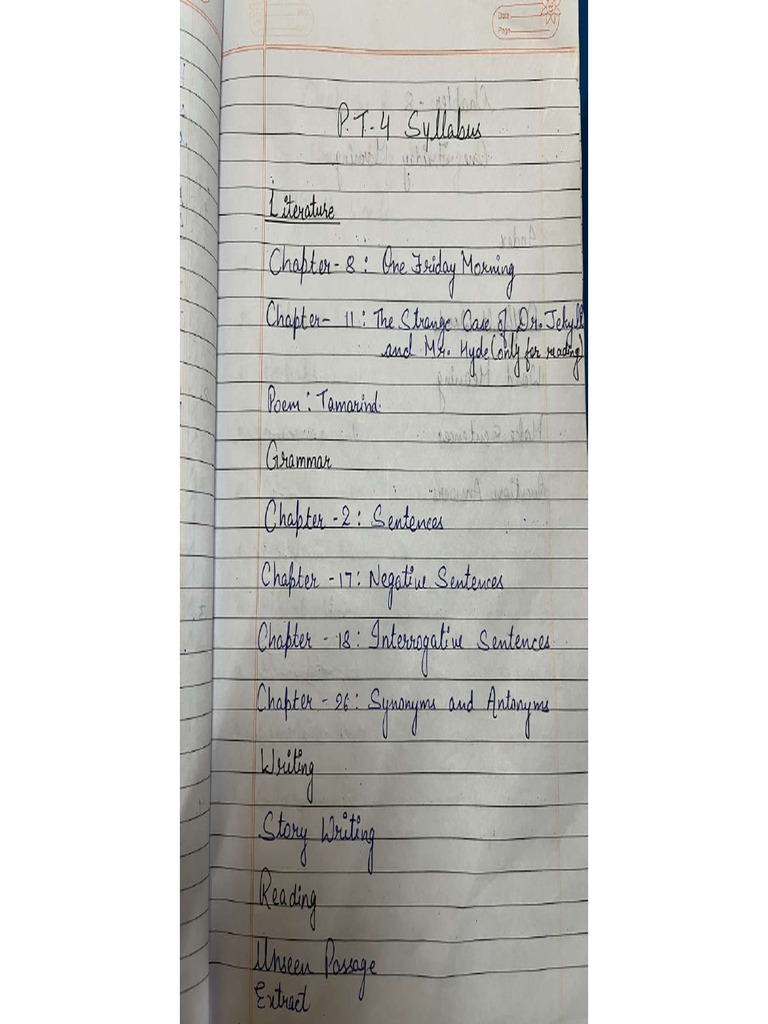 Date
Page
P.T-4 Syllabus
Literature
Chapter-8: One Friday Morning
Chapter- 11: The Strange Case of Dr. Jekyll
and Mr. Hyde (only for reading)
Poem: Tamarind.
Grammar
Chapter -2: Sentences
Chapter -17: Negative Sentences
Chapter -18: Interrogative Sentences
Chapter -26: Synonyms and Antonyms
Writing
Story Writing
Reading
Unseen Passage
Extract